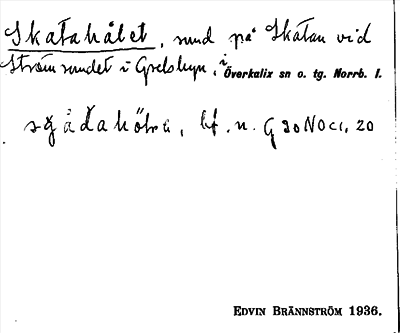 Skatahålet, sund på Skatan vid
Strömsundet i Grelsbyn, i Överkalix sn o. tg. Norrb. l.
bf. n. G 20 NO c1, 20
EDVIN BRÄNNSTRÖM 1936.